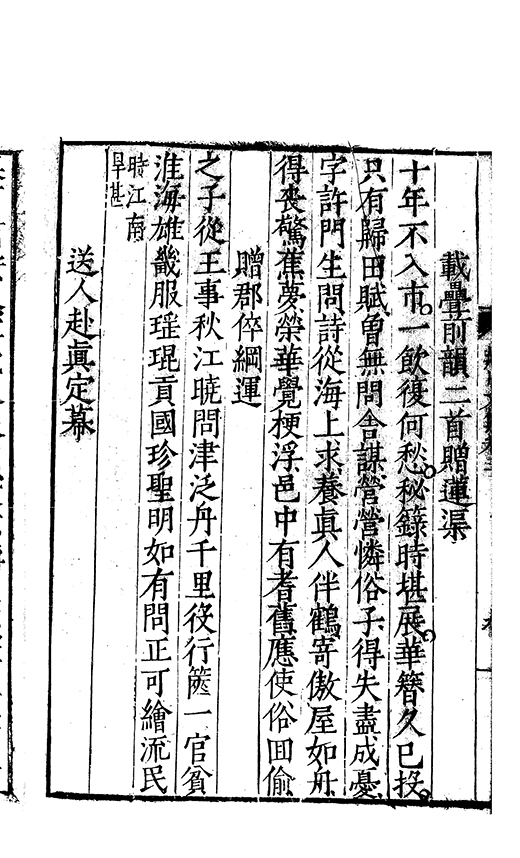 載疊前韻二首贈蓮渠
十年不入市。一飲復何愁。秘籙時堪展。華簪久已投。
只有歸田賦曾無問舍謀營營憐俗子得失盡成憂
字許門生問詩從海上求養眞人伴鶴寄傲屋如舟
得喪驚蕉夢榮華覺梗浮邑中有耆舊應使俗囬偷
贈郡倅綱運
之子從王事秋江曉問津泛舟千里役行篋一官貧
淮海雄畿服瑶琨貢國珍聖明如有問正可繪流民
時江南
旱甚
送人赴眞定幕